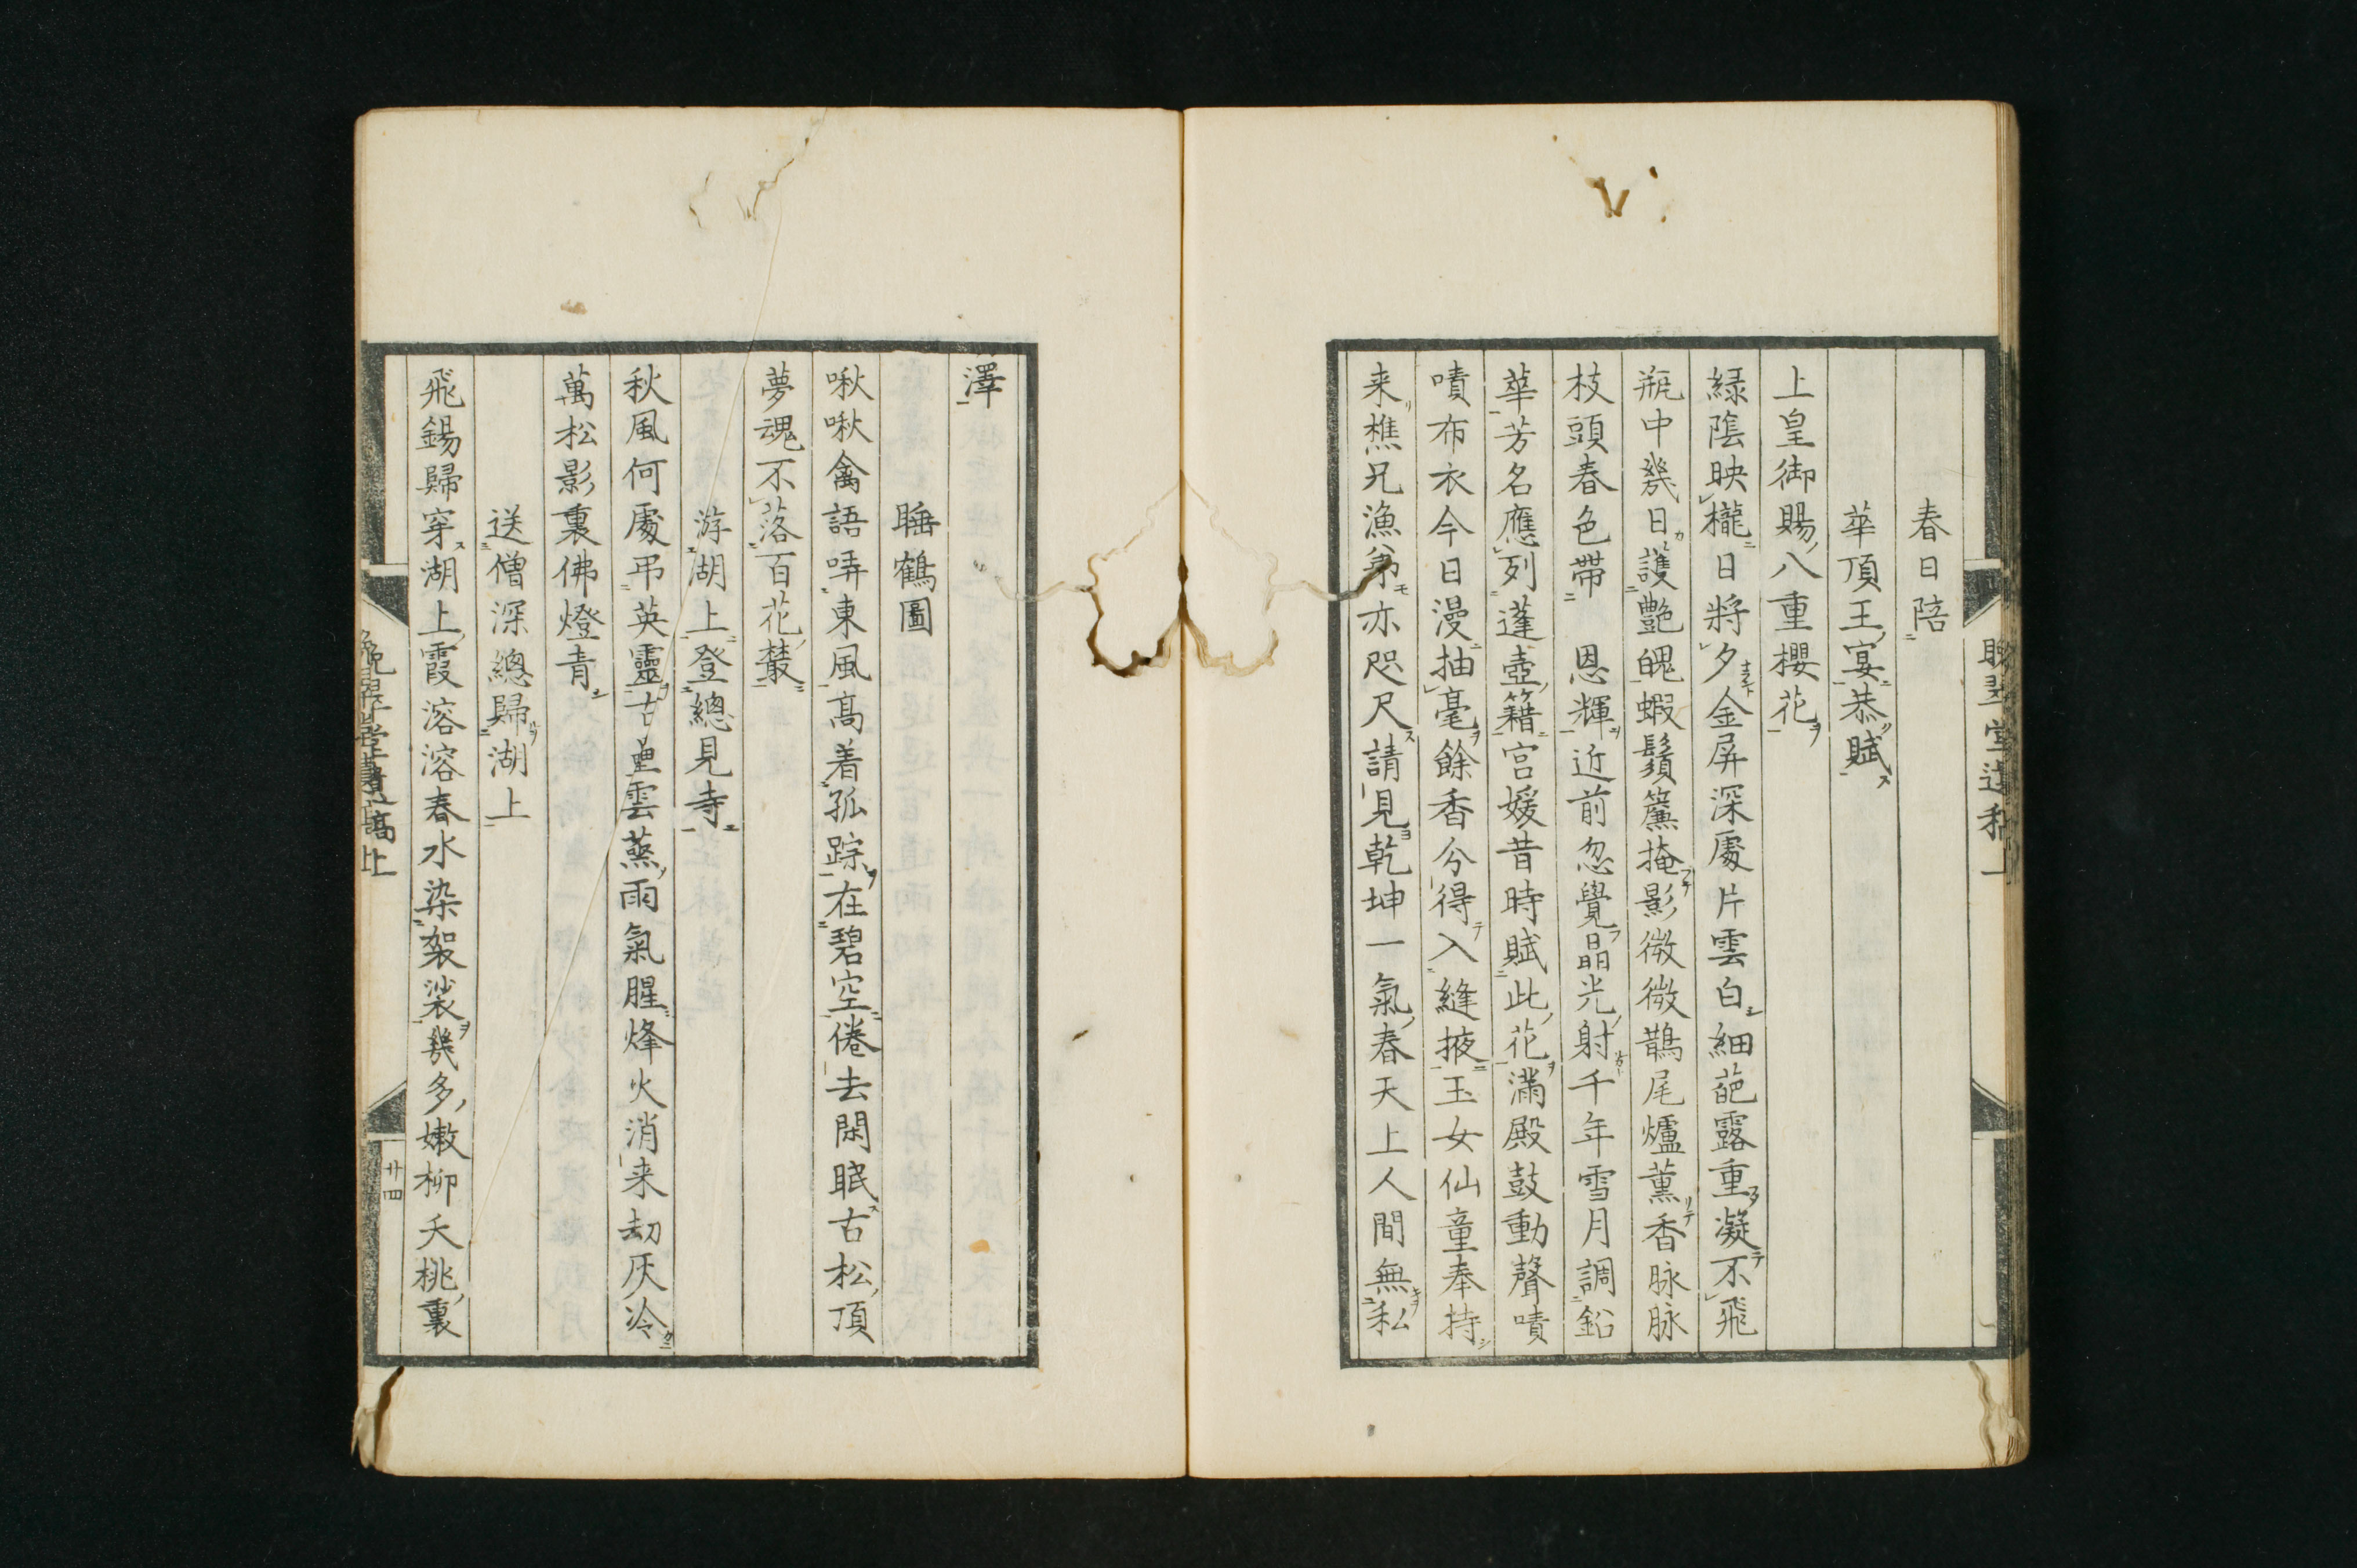 春日陪
華頂王宴恭賦
上皇御賜八重櫻花
緑陰映櫳日將夕金屏深處片雲白細葩露重凝不飛
瓶中幾日護艶魄蝦鬚簾掩影微微鵲尾爐薫香脉脉
枝頭春色帶恩輝近前忽覺晶光射千年雪月調鉛
華芳名應列蓬壺籍宮媛昔時賦此花滿殿鼓動聲嘖
嘖布衣今日漫抽毫餘香分得入縫掖玉女仙童奉持
来樵兄漁弟亦咫尺請見乾坤一氣春天上人間無私
澤
睡鶴圖
啾啾禽語哢東風高着孤踪在碧空倦去閑眠古松頂
夢魂不落百花叢
游湖上登總見寺
秋風何處弔英靈古壘雲蒸雨氣腥烽火消来劫灰冷
萬松影裏佛燈青
送僧深總歸湖上
飛錫歸穿湖上霞溶溶春水染袈裟幾多嫩柳夭桃裏
晩翠堂遺稿上
廿四